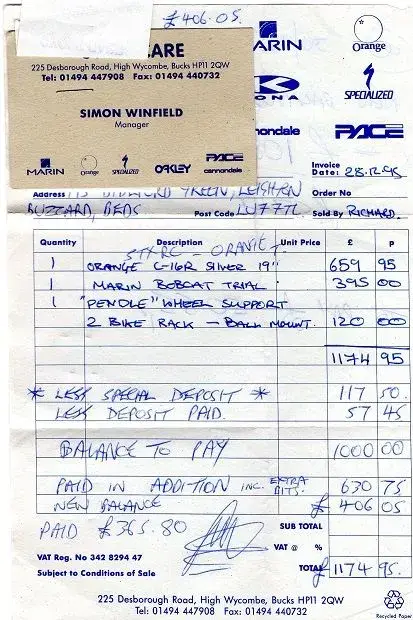 £406.05.
CARE
225 Desborough Road, High Wycombe, Bucks HP11 2QW
Tel: 01494 447908 Fax: 01494 440732
SIMON WINFIELD
Manager
MARIN Orange SPECIALIZED OAKLEY PACE cannondale
MARIN Orange
KONA SPECIALIZED
nondale PACE
Invoice Date: 28.12.95
Address GREEN, LEIGHTON Order No
BUZZARD, BEDS Post Code LU7 7TL Sold By RICHARD.
Quantity Description Unit Price £ p
STX-RC - ORANGE
1 ORANGE C-16R SILVER 19" 659 95
1 MARIN BOBCAT TRIAL 395 00
1 "PENDLE" WHEEL SUPPORT
2 BIKE RACK - BALL MOUNT. 120 00
1174 95
* LESS SPECIAL DEPOSIT * 117 50.
LESS DEPOSIT PAID. 57 45
BALANCE TO PAY 1000 00
PAID IN ADDITION INC. EXTRA BITS. 630 75
NEW BALANCE £ 406 05
PAID £365.80
SUB TOTAL
VAT Reg. No 342 8294 47 VAT @ %
Subject to Conditions of Sale TOTAL £ 1174 95.
225 Desborough Road, High Wycombe, Bucks HP11 2QW
Tel: 01494 447908 Fax: 01494 440732
Recycled Paper